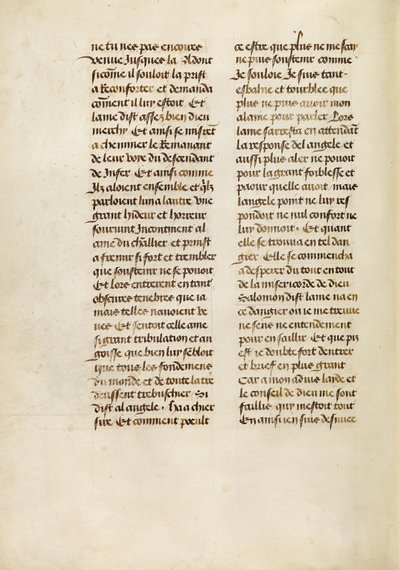 ne tu nes pas encores
venue Jusques la Adont
si come il souloit la prist
a Reconforter et demanda
coment il luy estoit Et
lame dist assez bien dieu
mercy Et ainsi se misrent
a cheminer le Remanant
de leur voye du descendant
de Infer Et ainsi comme
Ilz aloient ensemble et quilz
parloient lun a lautre Une
grant hideur et horreur
sourvint Incontinent al
ame du chlier et prinst
a fremir si fort et trembler
que soustenir ne se pouoit
Et lors entrerent en tant
obscures tenebres que ia
mais telles nauoient ve
ues Et sentoit celle ame
si grant tribulation et an
goisse que bien luy sebloit
que tous les fondemens
du monde et de toute la tre
deussent trebuschier Si
dist al angele . Ha a chier
sire Et comment poeult
ce estre que plus ne me scay
ne puis soustenir comme
Je souloie Je suis tant
esbahie et tourblee que
plus ne puis auoir mon
alaine pour parler Lors
lame sarresta en attendat
la response del angele et
aussi plus aler ne pouoit
pour la grant foiblesse et
paour quelle auoit mais
langele point ne luy res
pondoit ne nul confort ne
luy donnoit . Et quant
elle se trouua en tel dan
gier Elle se commencha
a desperer du tout en tout
de la misericorde de dieu
Salomon dist lame na en
ce dangier ou ie me treuue
ne sens ne entendement
pour en saillir Et que pis
est ie doubte fort dentrer
et brief en plus grant
Car a mon aduis laide et
le conseil de dieu me sont
faillis quy mestoit tout
En ainsi en suis desnuee